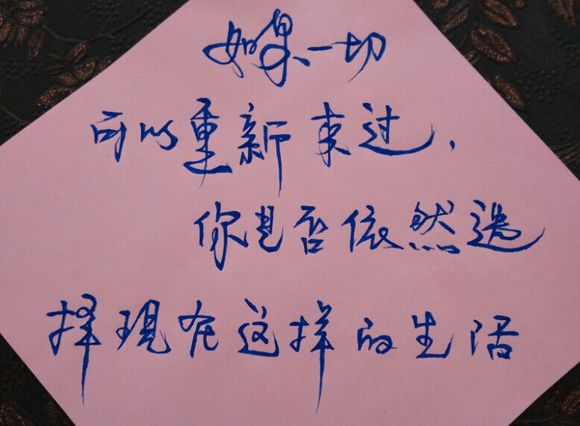 如果一切
可以重新来过，
你是否依然选
择现在这样的生活